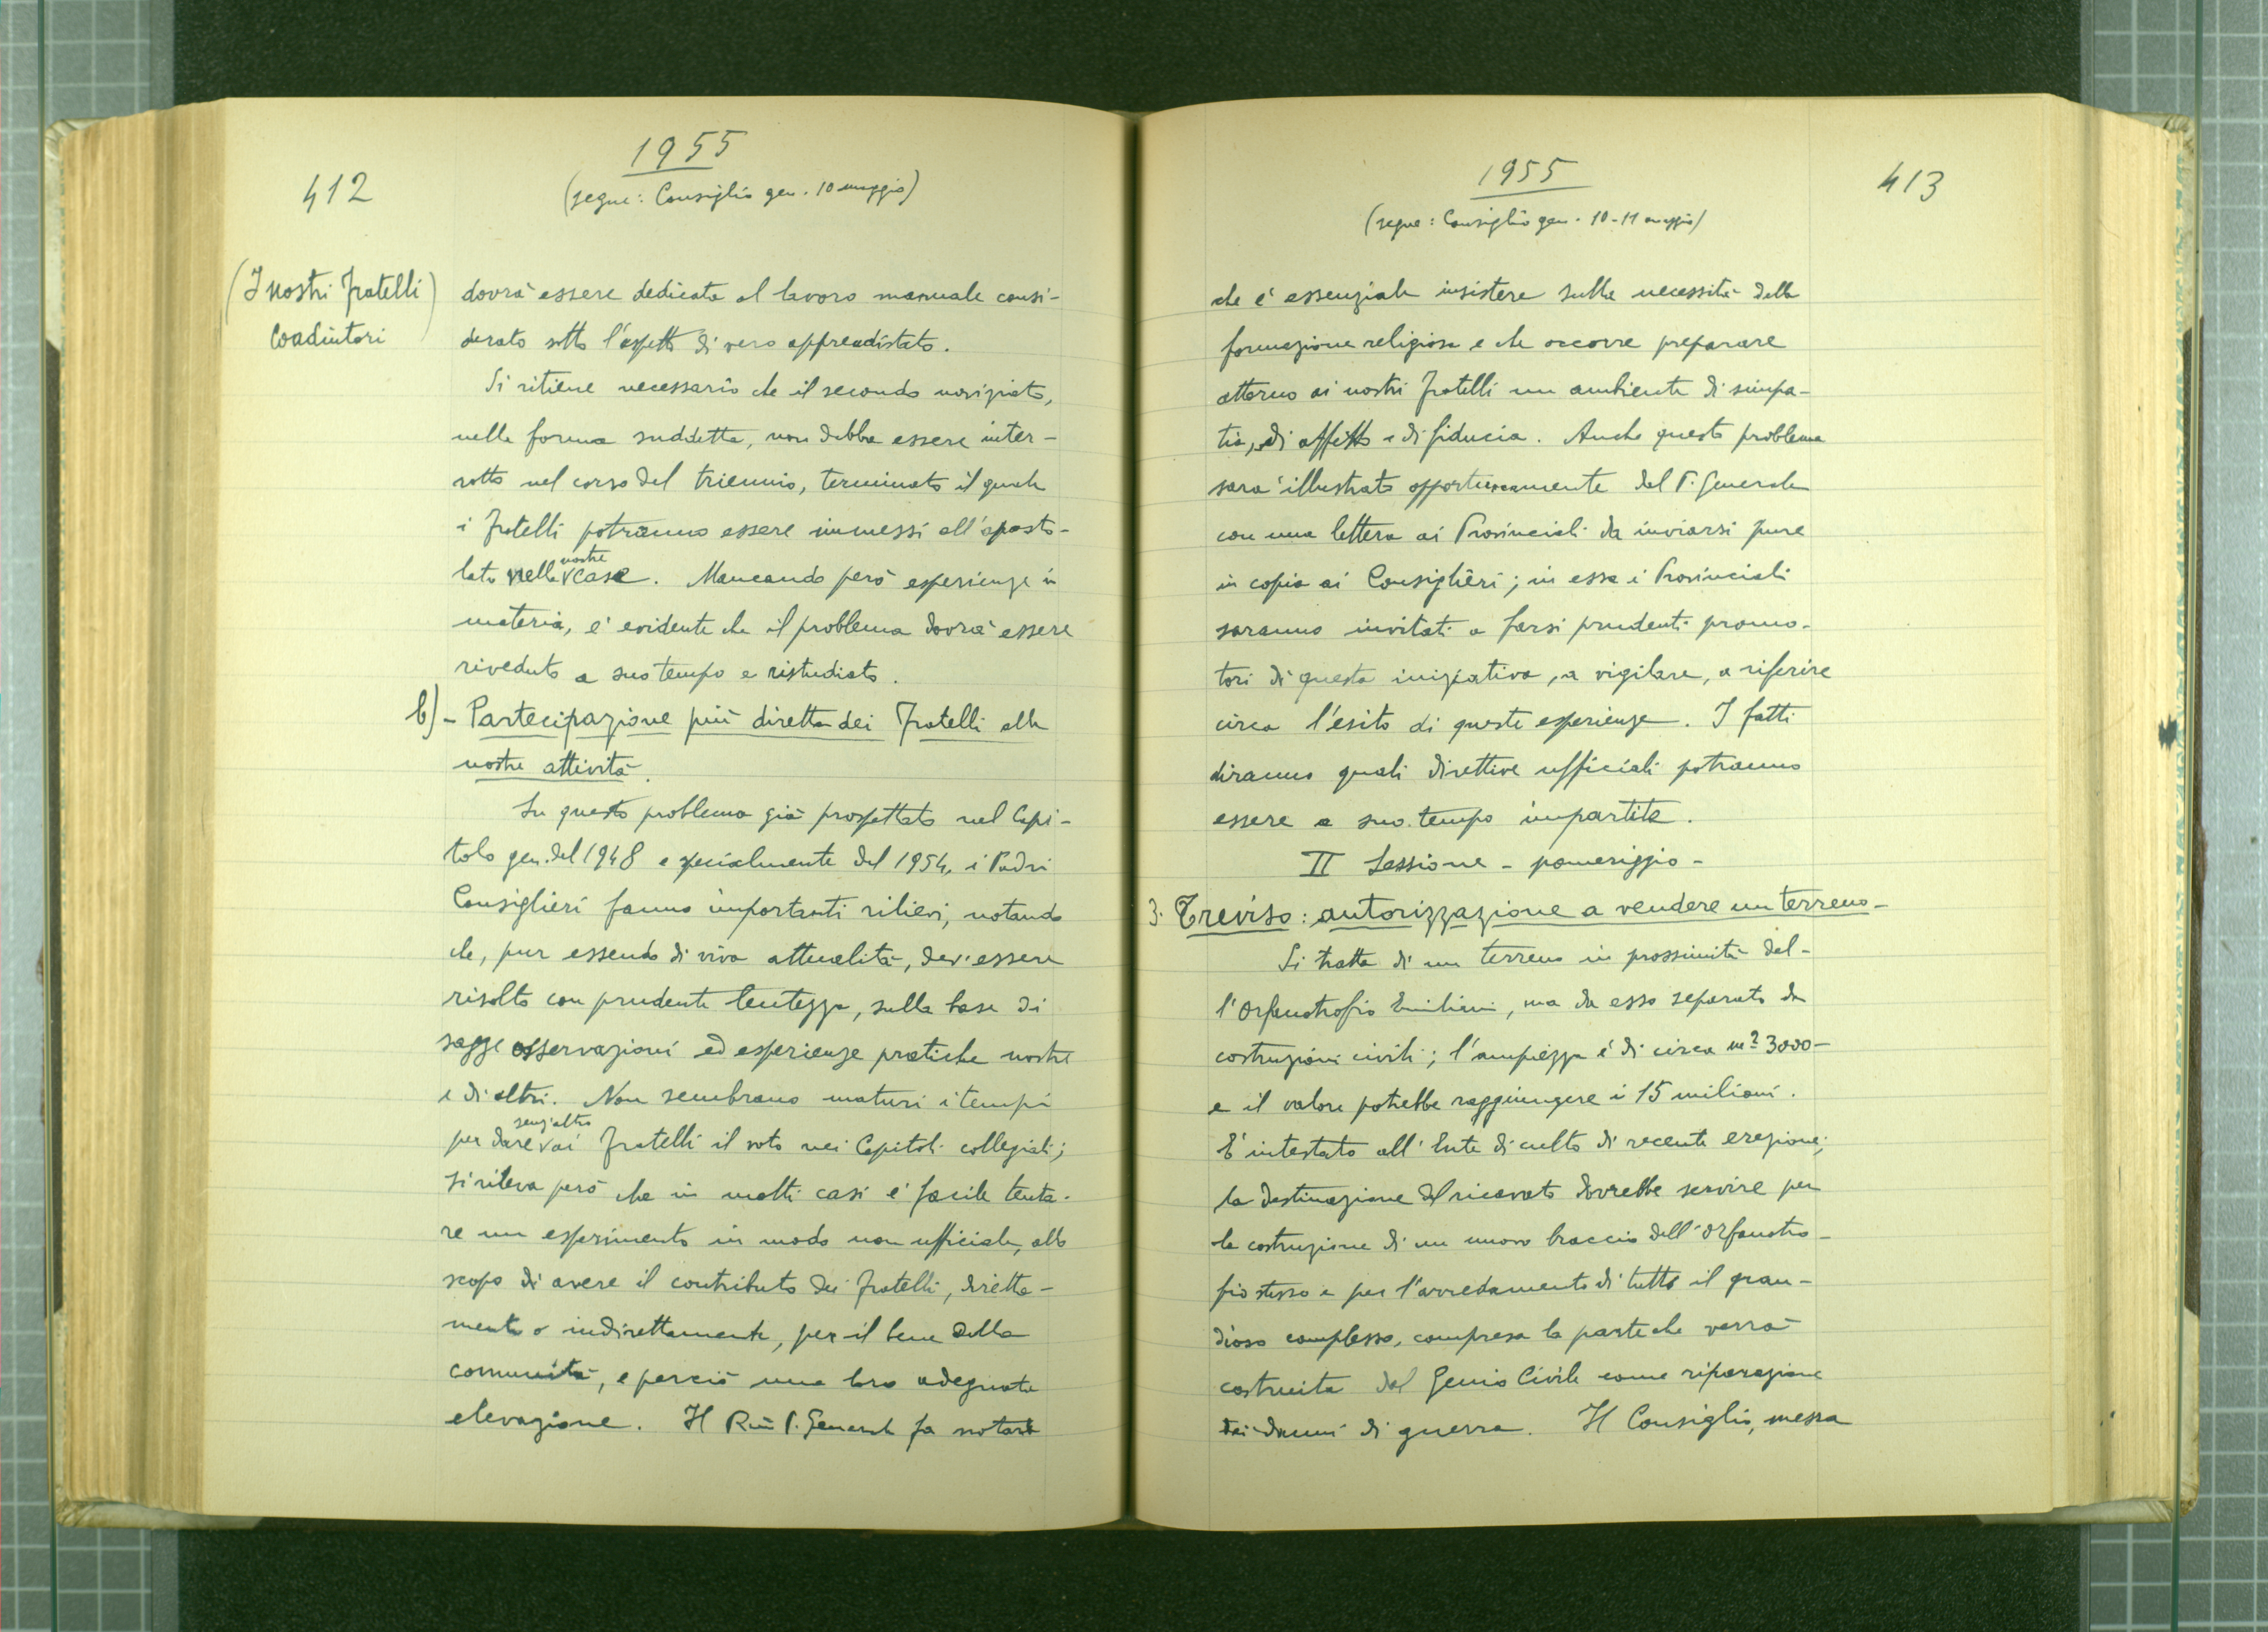 412
1955
(segue: Consiglio gen. 10 maggio)
(I nostri Fratelli
Coadiutori)
dovrà essere dedicata al lavoro manuale consi-
derato sotto l'aspetto di vero apprendistato.
Si ritiene necessario che il secondo noviziato,
nella forma suddetta, non debba essere inter-
rotto nel corso del triennio, terminato il quale
i Fratelli potranno essere immessi all'aposto-
lato nelle nostre case. Mancando però esperienze in
materia, e' evidente che il problema dovrà essere
riveduto a suo tempo e ristudiato.
b) - Partecipazione più diretta dei Fratelli alle
nostre attività.
Su questo problema già prospettato nel Capi-
tolo gen. del 1948 e specialmente del 1954, i Padri
Consiglieri fanno importanti rilievi, notando
che, pur essendo di viva attualità, dev'essere
risolto con prudente lentezza, sulla base di
sagge osservazioni ed esperienze pratiche nostre
e di altri. Non sembrano maturi i tempi
per dare senz'altro ai Fratelli il voto nei Capitoli collegiali;
si rileva però che in molti casi e' facile tenta-
re un esperimento in modo non ufficiale, allo
scopo di avere il contributo dei Fratelli, diretta-
mente o indirettamente, per il bene della
comunità, e perciò una loro adeguata
elevazione. Il Rmo P. Generale fa notare
1955
413
(segue: Consiglio gen. 10-11 maggio)
che e' essenziale insistere sulla necessità della
formazione religiosa e che occorre preparare
attorno ai nostri Fratelli un ambiente di simpa-
tia, di affetto e di fiducia. Anche questo problema
sara' illustrato opportunamente dal P. Generale
con una lettera ai Provinciali da inviarsi pure
in copia ai Consiglieri; in essa i Provinciali
saranno invitati a farsi prudenti promo-
tori di questa iniziativa, a vigilare, a riferire
circa l'esito di queste esperienze. I fatti
diranno quali direttive ufficiali potranno
essere a suo tempo impartite.
II Sessione - pomeriggio -
3. Treviso: autorizzazione a vendere un terreno -
Si tratta di un terreno in prossimità del-
l'Orfanotrofio Emiliani, ma da esso separato da
costruzioni civili; l'ampiezza è di circa m² 3000 -
e il valore potrebbe raggiungere i 15 milioni.
E' intestato all'Ente di culto di recente erezione;
la destinazione del ricavato dovrebbe servire per
la costruzione di un nuovo braccio dell'Orfanotro-
fio stesso e per l'arredamento di tutto il gran-
dioso complesso, compresa la parte che verrà
costruita dal Genio Civile come riparazione
dei danni di guerra. Il Consiglio, messa